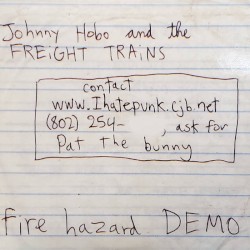 Johnny Hobo and the
FREiGHT TRAiNS
contact
www.Ihatepunk.cjb.net
(802) 254-      , ask for
Pat the bunny
fire hazard DEMO